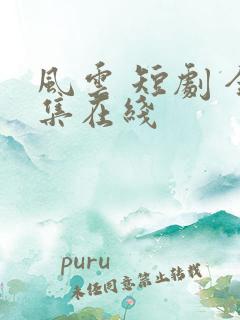 風雲短劇全
集在綫
puru
未经同意禁止转载